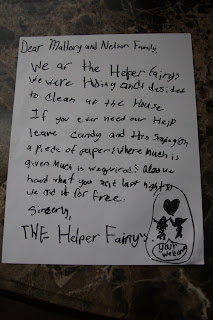 Dear Mallory and Nelson Family,
We ar the Helper Fairys
We were Hiding and desided
to clean up the House
If you ever need our Help
leave candy and
a piece of paper: where much is
given Much is wequired: also we
heard what you last night so
we did it for free.
Sincerly,
THE Helper Fairys.
your welcome